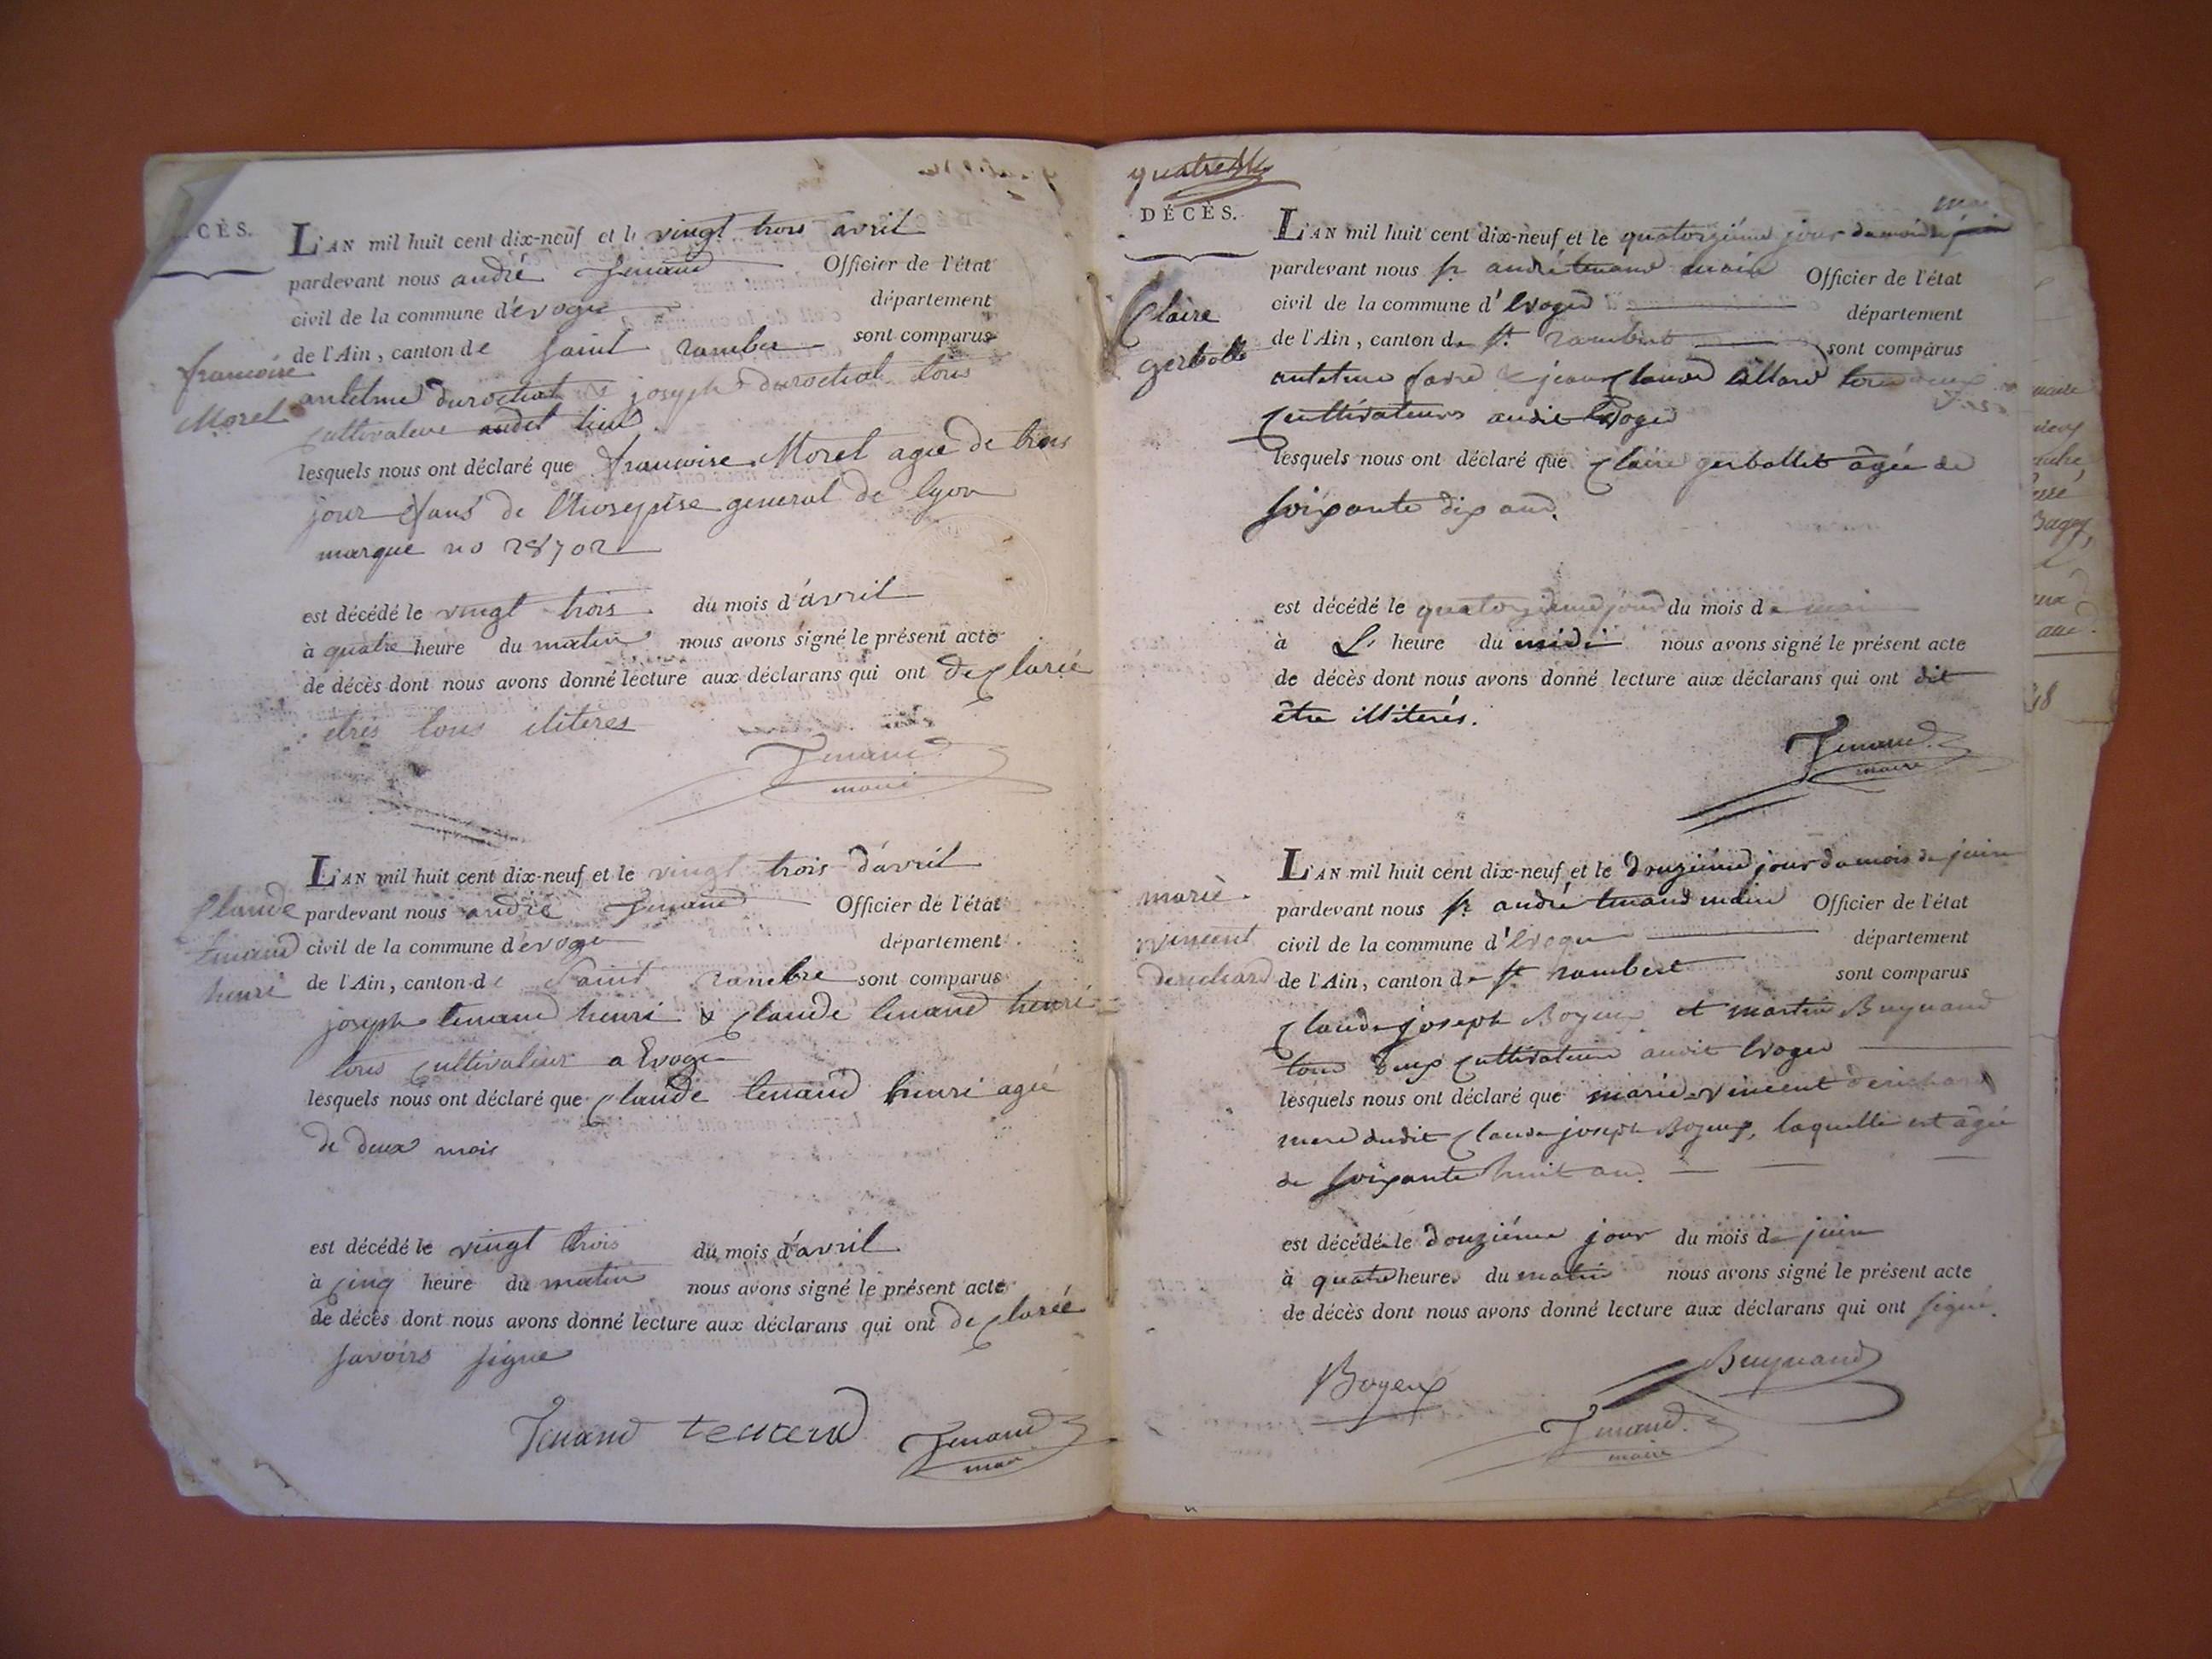 CÈS.
L'AN mil huit cent dix-neuf et le vingt trois avril
pardevant nous andré Tenand Officier de l'état
civil de la commune d'évoge département
de l'Ain, canton de saint ramber sont comparus
francoise
Morel
antelme durochat & joseph durochat tous
cultivateur audit lieu
lesquels nous ont déclaré que francoise Morel agée de trois
jour de general de lyon
marque no 28702
est décédé le vingt trois du mois d'avril
à quatre heure du matin nous avons signé le présent acte
de décès dont nous avons donné lecture aux déclarans qui ont declarié
etres tous iliteres
Tenand
maire
L'AN mil huit cent dix-neuf et le vingt trois d'avril
Claude
tenand
henri
pardevant nous andré Tenand Officier de l'état
civil de la commune d'évoge département
de l'Ain, canton de Saint rambre sont comparus
joseph tenand henri & Claude tenand henri
tous cultivateur a Evoge
lesquels nous ont déclaré que Claude tenand henri agé
de deux mois
est décédé le vingt trois du mois d'avril
à cinq heure du matin nous avons signé le présent acte
de décès dont nous avons donné lecture aux déclarans qui ont declarée
savoirs signe
Tenand tenand Tenand
maire
quatre
DÉCÈS.
mai
L'AN mil huit cent dix-neuf et le quatorziéme jour du mois de juin
pardevant nous sr. andré tenand maire Officier de l'état
civil de la commune d'Evoges département
de l'Ain, canton de st. rambert sont comparus
Claire
gerbollet
antelme favre & jean Claude tous deux
cultivateurs audit Evoges
lesquels nous ont déclaré que Claire gerbollet âgée de
soixante dix ans.
est décédé le quatorziéme jour du mois de mai
à heure du midi nous avons signé le présent acte
de décès dont nous avons donné lecture aux déclarans qui ont dit
être illiterés.
Tenand
maire
L'AN mil huit cent dix-neuf et le douziéme jour du mois de juin
marie
vincent
derichard
pardevant nous sr. andré tenand maire Officier de l'état
civil de la commune d'Evoges département
de l'Ain, canton de st. rambert sont comparus
Claude joseph Boyeux et martin Buynand
tous deux cultivateurs audit Evoges
lesquels nous ont déclaré que marie vincent derichard
mere dudit Claude joseph Boyeux, laquelle est âgée
de soixante huit ans.
est décédé le douziéme jour du mois de juin
à quatre heures du matin nous avons signé le présent acte
de décès dont nous avons donné lecture aux déclarans qui ont signé.
Boyeux Buynand
Tenand
maire